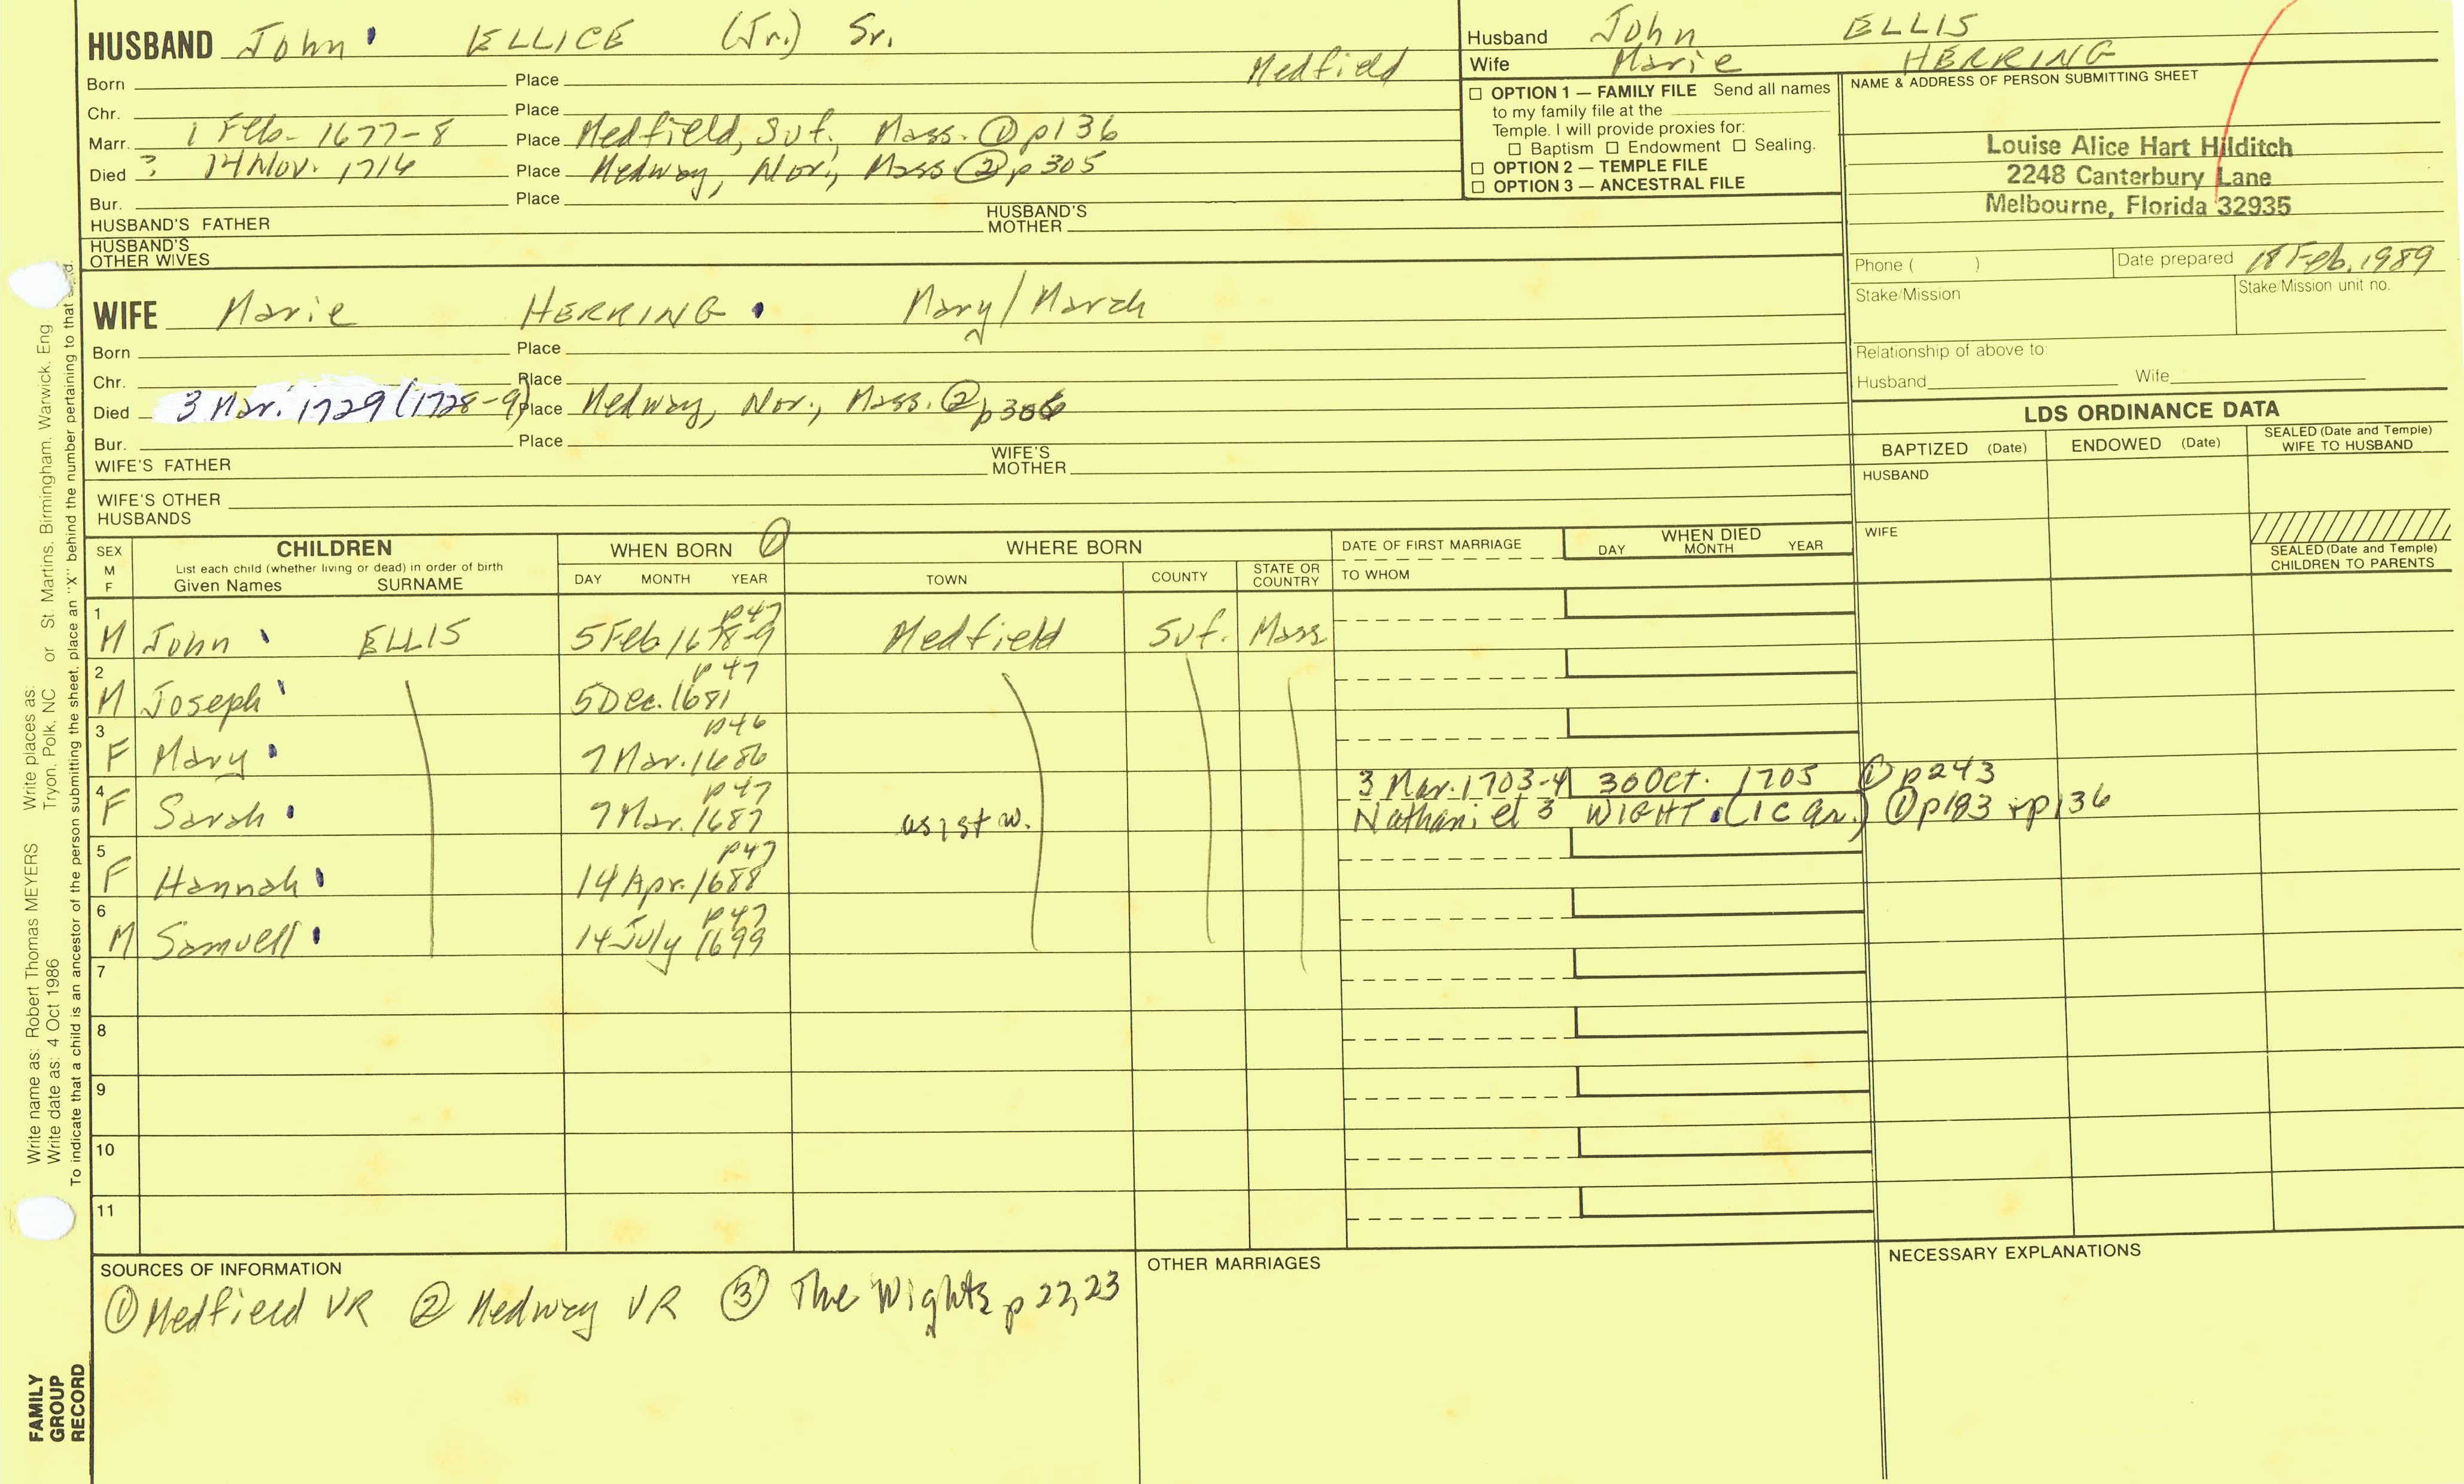 HUSBAND John ELLICE (Jr.) Sr.
Born Place Medfield
Chr. Place
Marr. 1 Feb- 1677-8 Place Medfield, Suf., Mass. ① p136
Died ? 14 Nov. 1716 Place Medway, Nor., Mass ② p305
Bur. Place
HUSBAND'S FATHER HUSBAND'S MOTHER
HUSBAND'S OTHER WIVES
Husband John ELLIS
Wife Marie HERRING
☐ OPTION 1 — FAMILY FILE Send all names
to my family file at the
Temple. I will provide proxies for:
☐ Baptism ☐ Endowment ☐ Sealing.
☐ OPTION 2 — TEMPLE FILE
☐ OPTION 3 — ANCESTRAL FILE
NAME & ADDRESS OF PERSON SUBMITTING SHEET
Louise Alice Hart Hilditch
2248 Canterbury Lane
Melbourne, Florida 32935
Phone ( ) Date prepared 18 Feb. 1989
Stake/Mission Stake/Mission unit no.
Relationship of above to:
Husband Wife
WIFE Marie HERRING Mary/March
Born Place
Chr. Place
Died 3 Mar. 1729 (1728-9) Place Medway, Nor., Mass. ② p306
Bur. Place
WIFE'S FATHER WIFE'S MOTHER
WIFE'S OTHER HUSBANDS
LDS ORDINANCE DATA
BAPTIZED (Date) ENDOWED (Date) SEALED (Date and Temple) WIFE TO HUSBAND
HUSBAND
WIFE
SEALED (Date and Temple) CHILDREN TO PARENTS
SEX M F
CHILDREN
List each child (whether living or dead) in order of birth
Given Names SURNAME
WHEN BORN ①
DAY MONTH YEAR
WHERE BORN
TOWN COUNTY STATE OR COUNTRY
DATE OF FIRST MARRIAGE
TO WHOM
WHEN DIED
DAY MONTH YEAR
1 M John ELLIS 5 Feb 1678-9 p47 Medfield Suf. Mass
2 M Joseph 5 Dec. 1681 p47
3 F Mary 7 Mar. 1686 p46
4 F Sarah 7 Mar. 1687 p47 as 1st w. 3 Mar. 1703-4 30 Oct. 1705 ① p243
Nathaniel 3 WIGHT (1C ar.) ① p183 + p136
5 F Hannah 14 Apr. 1688 p47
6 M Samuell 14 July 1699 p47
7
8
9
10
11
SOURCES OF INFORMATION
① Medfield VR ② Medway VR ③ The Wights p 22, 23
OTHER MARRIAGES
NECESSARY EXPLANATIONS
Write name as: Robert Thomas MEYERS Write places as: St. Martins, Birmingham, Warwick, Eng
Write date as: 4 Oct 1986 Tryon, Polk, NC or
To indicate that a child is an ancestor of the person submitting the sheet, place an "X" behind the number pertaining to that
FAMILY
GROUP
RECORD